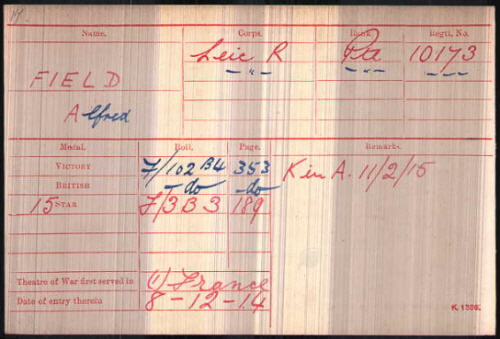 Name. Corps. Rank. Regtl. No.
Leic R Pte 10173
— " — — " — — " —
FIELD
Alfred
Medal. Roll. Page. Remarks.
VICTORY F/102 B4 353 K in A. 11/2/15
BRITISH —do —do
15 STAR F/3 B 3 189
Theatre of War first served in (1) France
Date of entry therein 8-12-14
K. 1380.